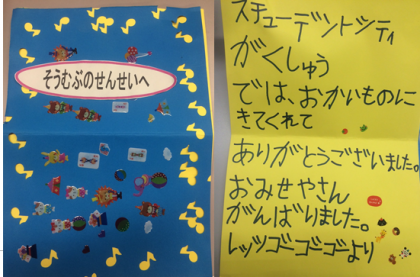 そうむぶのせんせいへ
スチューデントシティ
がくしゅう
では、おかいものに
きてくれて
ありがとうございました。
おみせやさん
がんばりました。
レッツゴーゴーゴーより